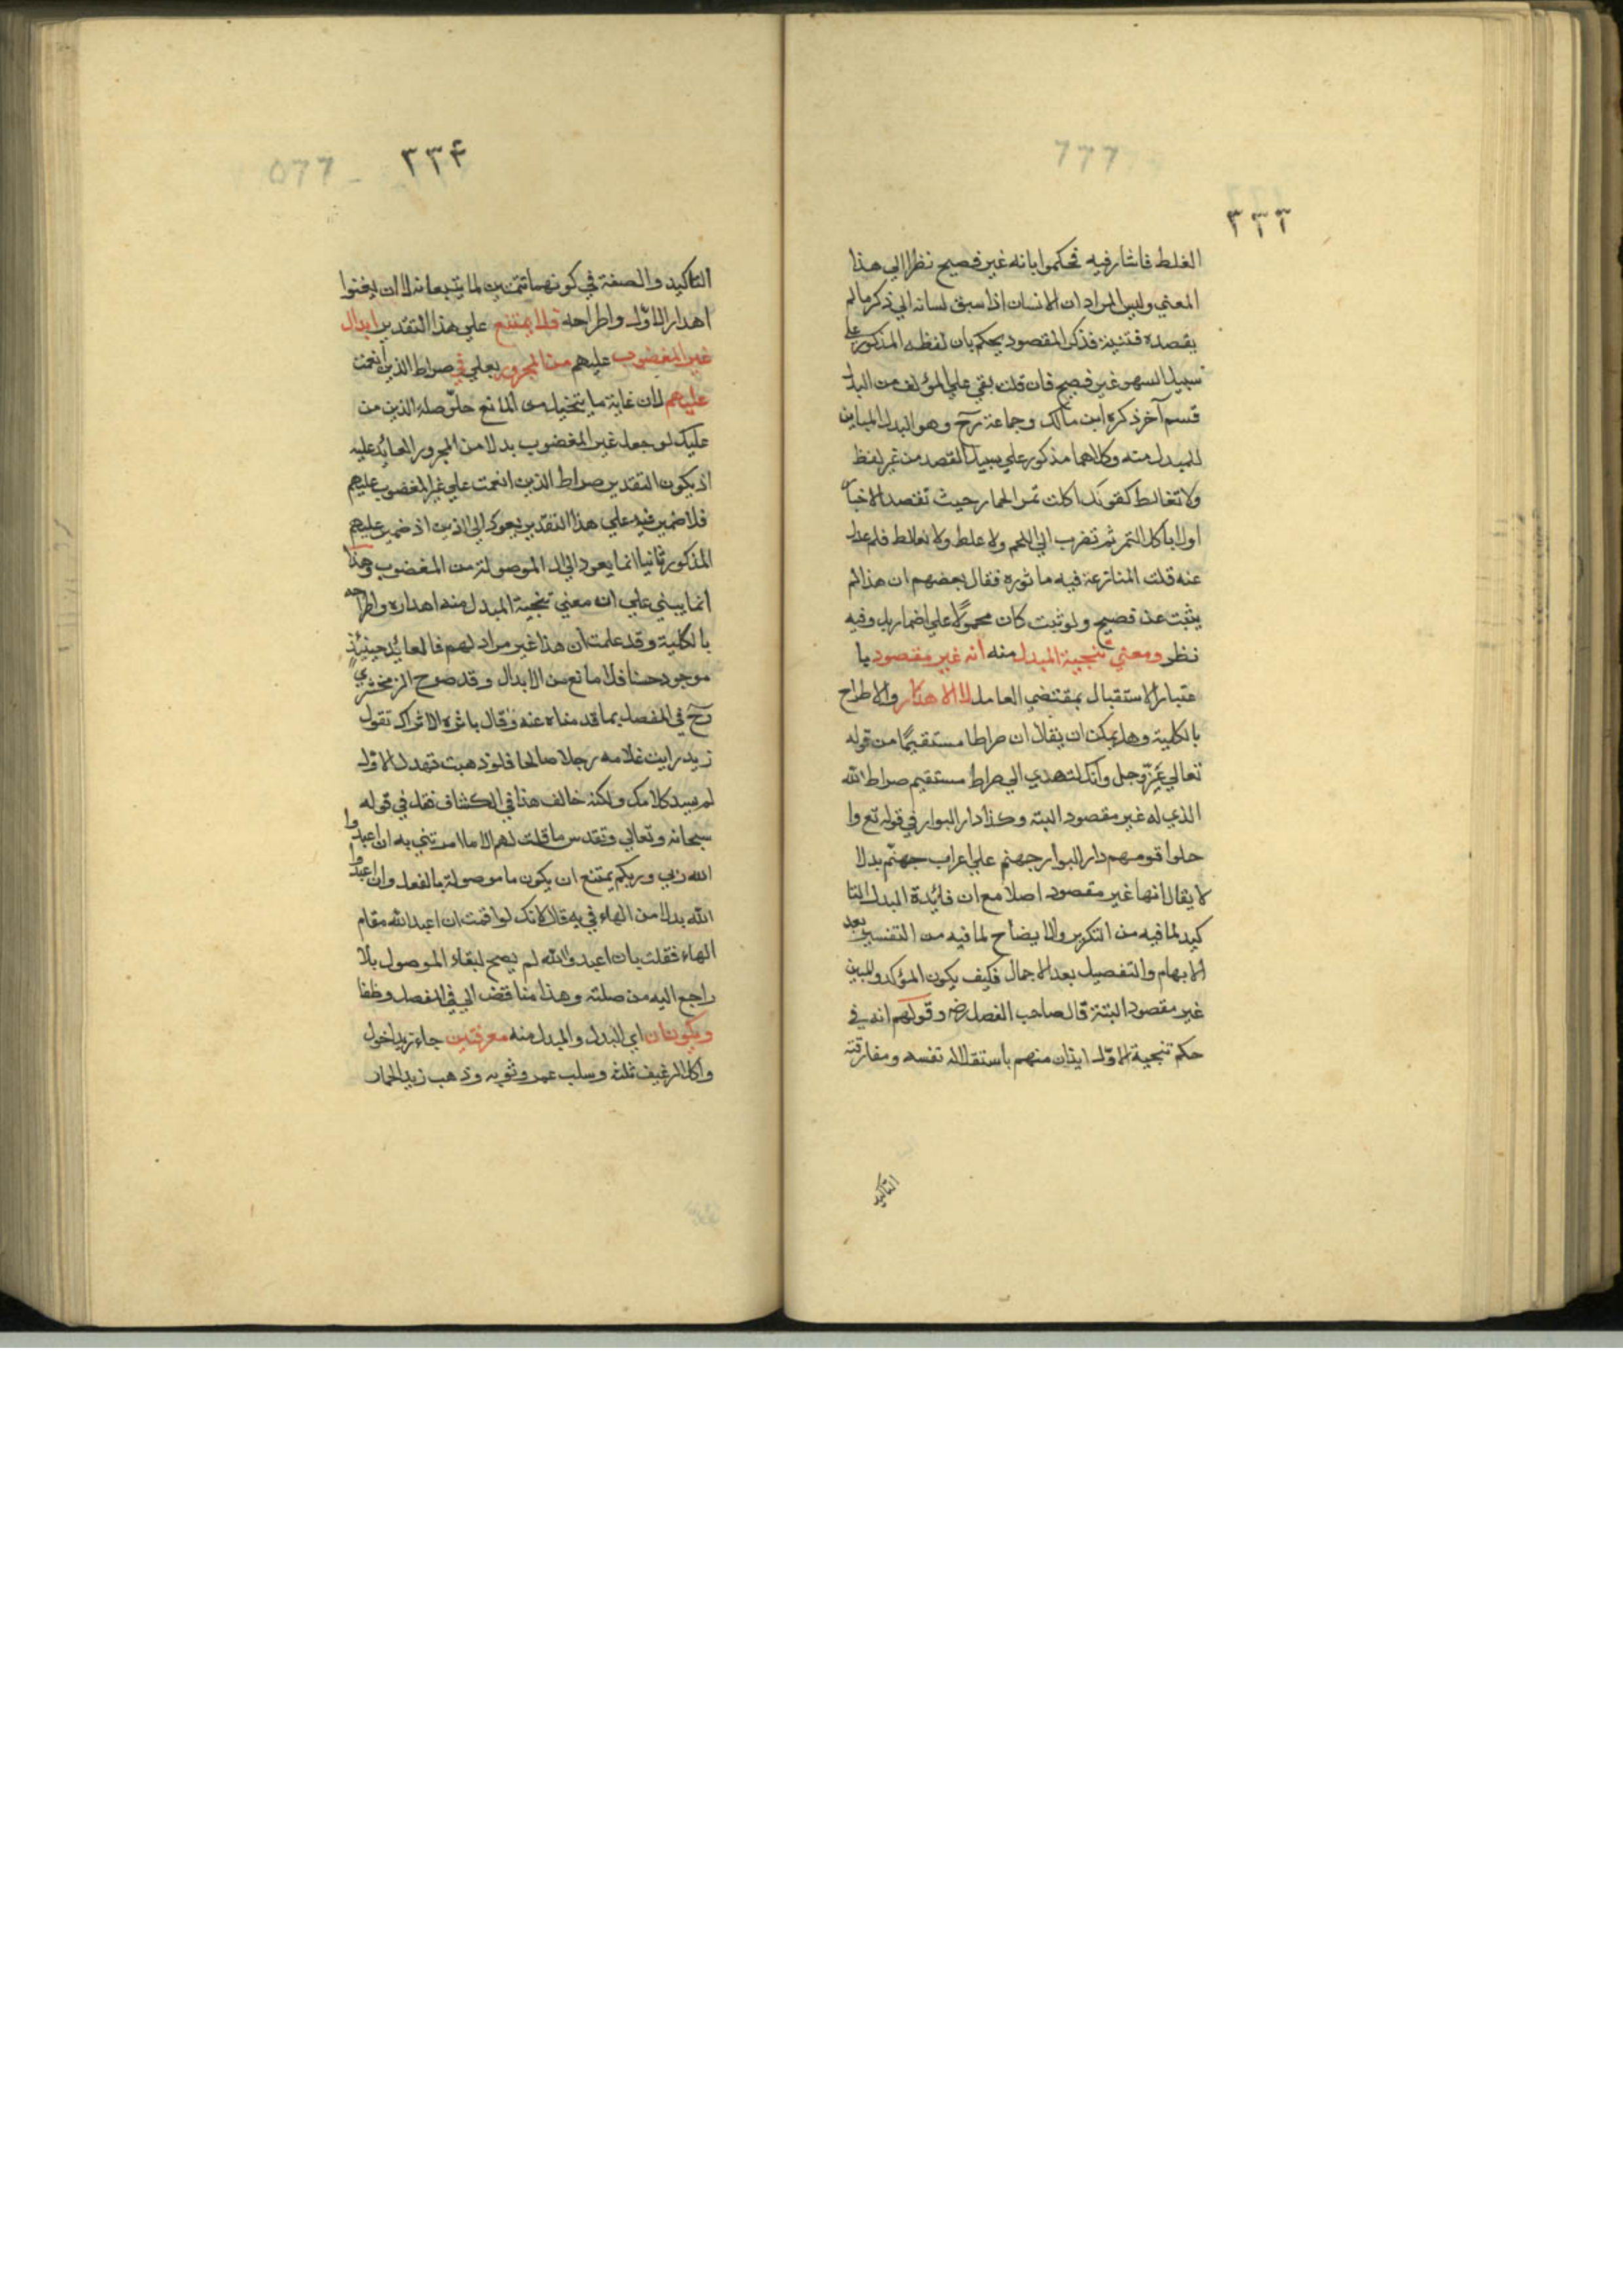 ٣٣٣
الغلط فاشار فيه فحكموا بانه غير فصيح نظرا الي هذا
المعني وليس المراد ان الانسان اذا سبق لسانه الي ذكر ما لم
يقصده فتنبه فذكر المقصود يحكم بان لفظه المذكور علي
سبيل السهو غير فصيح فان قلت بقي علي المؤلف من البدل
قسم آخر ذكره ابن مالك وجماعة رح وهو البدل المباين
للمبدل منه وكلاهما مذكور علي سبيل القصد من غير لفظ
ولا تغالط كقولك اكلت تمرا لحما حيث تقصد الاخبا
اولا باكل التمر ثم تضرب الي اللحم ولا غلط ولا تغالط فلم عدل
عنه قلت المنازعة فيه ماثوره فقال بعضهم ان هذا لم
يثبت عن فصيح ولو ثبت كان محمولا علي اضمار بل وفيه
نظر ومعني تنحية المبدل منه انه غير مقصود با
عتبار الاستقبال بمقتضي العامل لا الاهدار والاطراح
بالكلية وهل يمكن ان يقال ان صراطا مستقيما من قوله
تعالي عزّ وجل وانك لتهدي الي صراط مستقيم صراط الله
الذي له غير مقصود البته وكذا دار البوار في قوله تع وا
حلوا قومهم دار البوار جهنم علي اعراب جهنم بدلا
لا يقال انها غير مقصود اصلا مع ان فائدة البدل التا
كيد لما فيه من التكرير والايضاح لما فيه من التفسير بعد
الابهام والتفصيل بعد الاجمال فكيف يكون المؤكد والمبين
غير مقصود البتة قال صاحب المفصل رضه وقولهم انه في
حكم تنحية الاوّل ايذان منهم باستقلاله نفسه ومفارقته
التاكيد
٣٣۴
التاكيد والصفة في كونهما تتمتين لما يتبعانه لا ان يعنوا
اهدار الاوّل واطراحه فلا يمتنع علي هذا التقدير ابدال
غير المغضوب عليهم من المجرور بعلي في صراط الذين انعمت
عليهم لان غاية ما يتخيل من المانع خلوّ صلة الذين من
عليك لو جعل غير المغضوب بدلا من المجرور العائد عليه
اذ يكون التقدير صراط الذين انعمت علي غير المغضوب عليهم
فلا ضمير فيه علي هذا التقدير يعود الي الذين اذ ضمير عليهم
المذكور ثانيا انما يعود الي ال الموصولة من المغضوب وهذا
انما يبني علي ان معني تنحية المبدل منه اهداره واطراحه
بالكلية وقد علمت ان هذا غير مراد لهم فالعائد حينئذ
موجود حسا فلا مانع من الابدال وقد صرح الزمخشري
رح في المفصل بما قدمناه عنه وقال باثره الا تراك تقول
زيد رايت غلامه رجلا صالحا فلو ذهبت تهدر الاول
لم يسد كلامك ولكنه خالف هذا في الكشاف فقل في قوله
سبحانه وتعالي وتقدس ما قلت لهم الا ما امرتني به ان اعبدوا
الله ربي وربكم يمتنع ان يكون ما موصولة بالفعل وان اعبدوا
الله بدلا من الهاء في به قال لانك لو اقمت ان اعبد الله مقام
الهاء فقلت بان اعبدوا الله لم يصح لبقاء الموصول بلا
راجع اليه من صلته وهذا مناقض الي في المفصل وظفا
ويكونان اي البدل والمبدل منه معرفتين جاء زيد اخوك
واكل الرغيف ثلثه وسلب عمرو ثوبه وذهب زيد الحمار